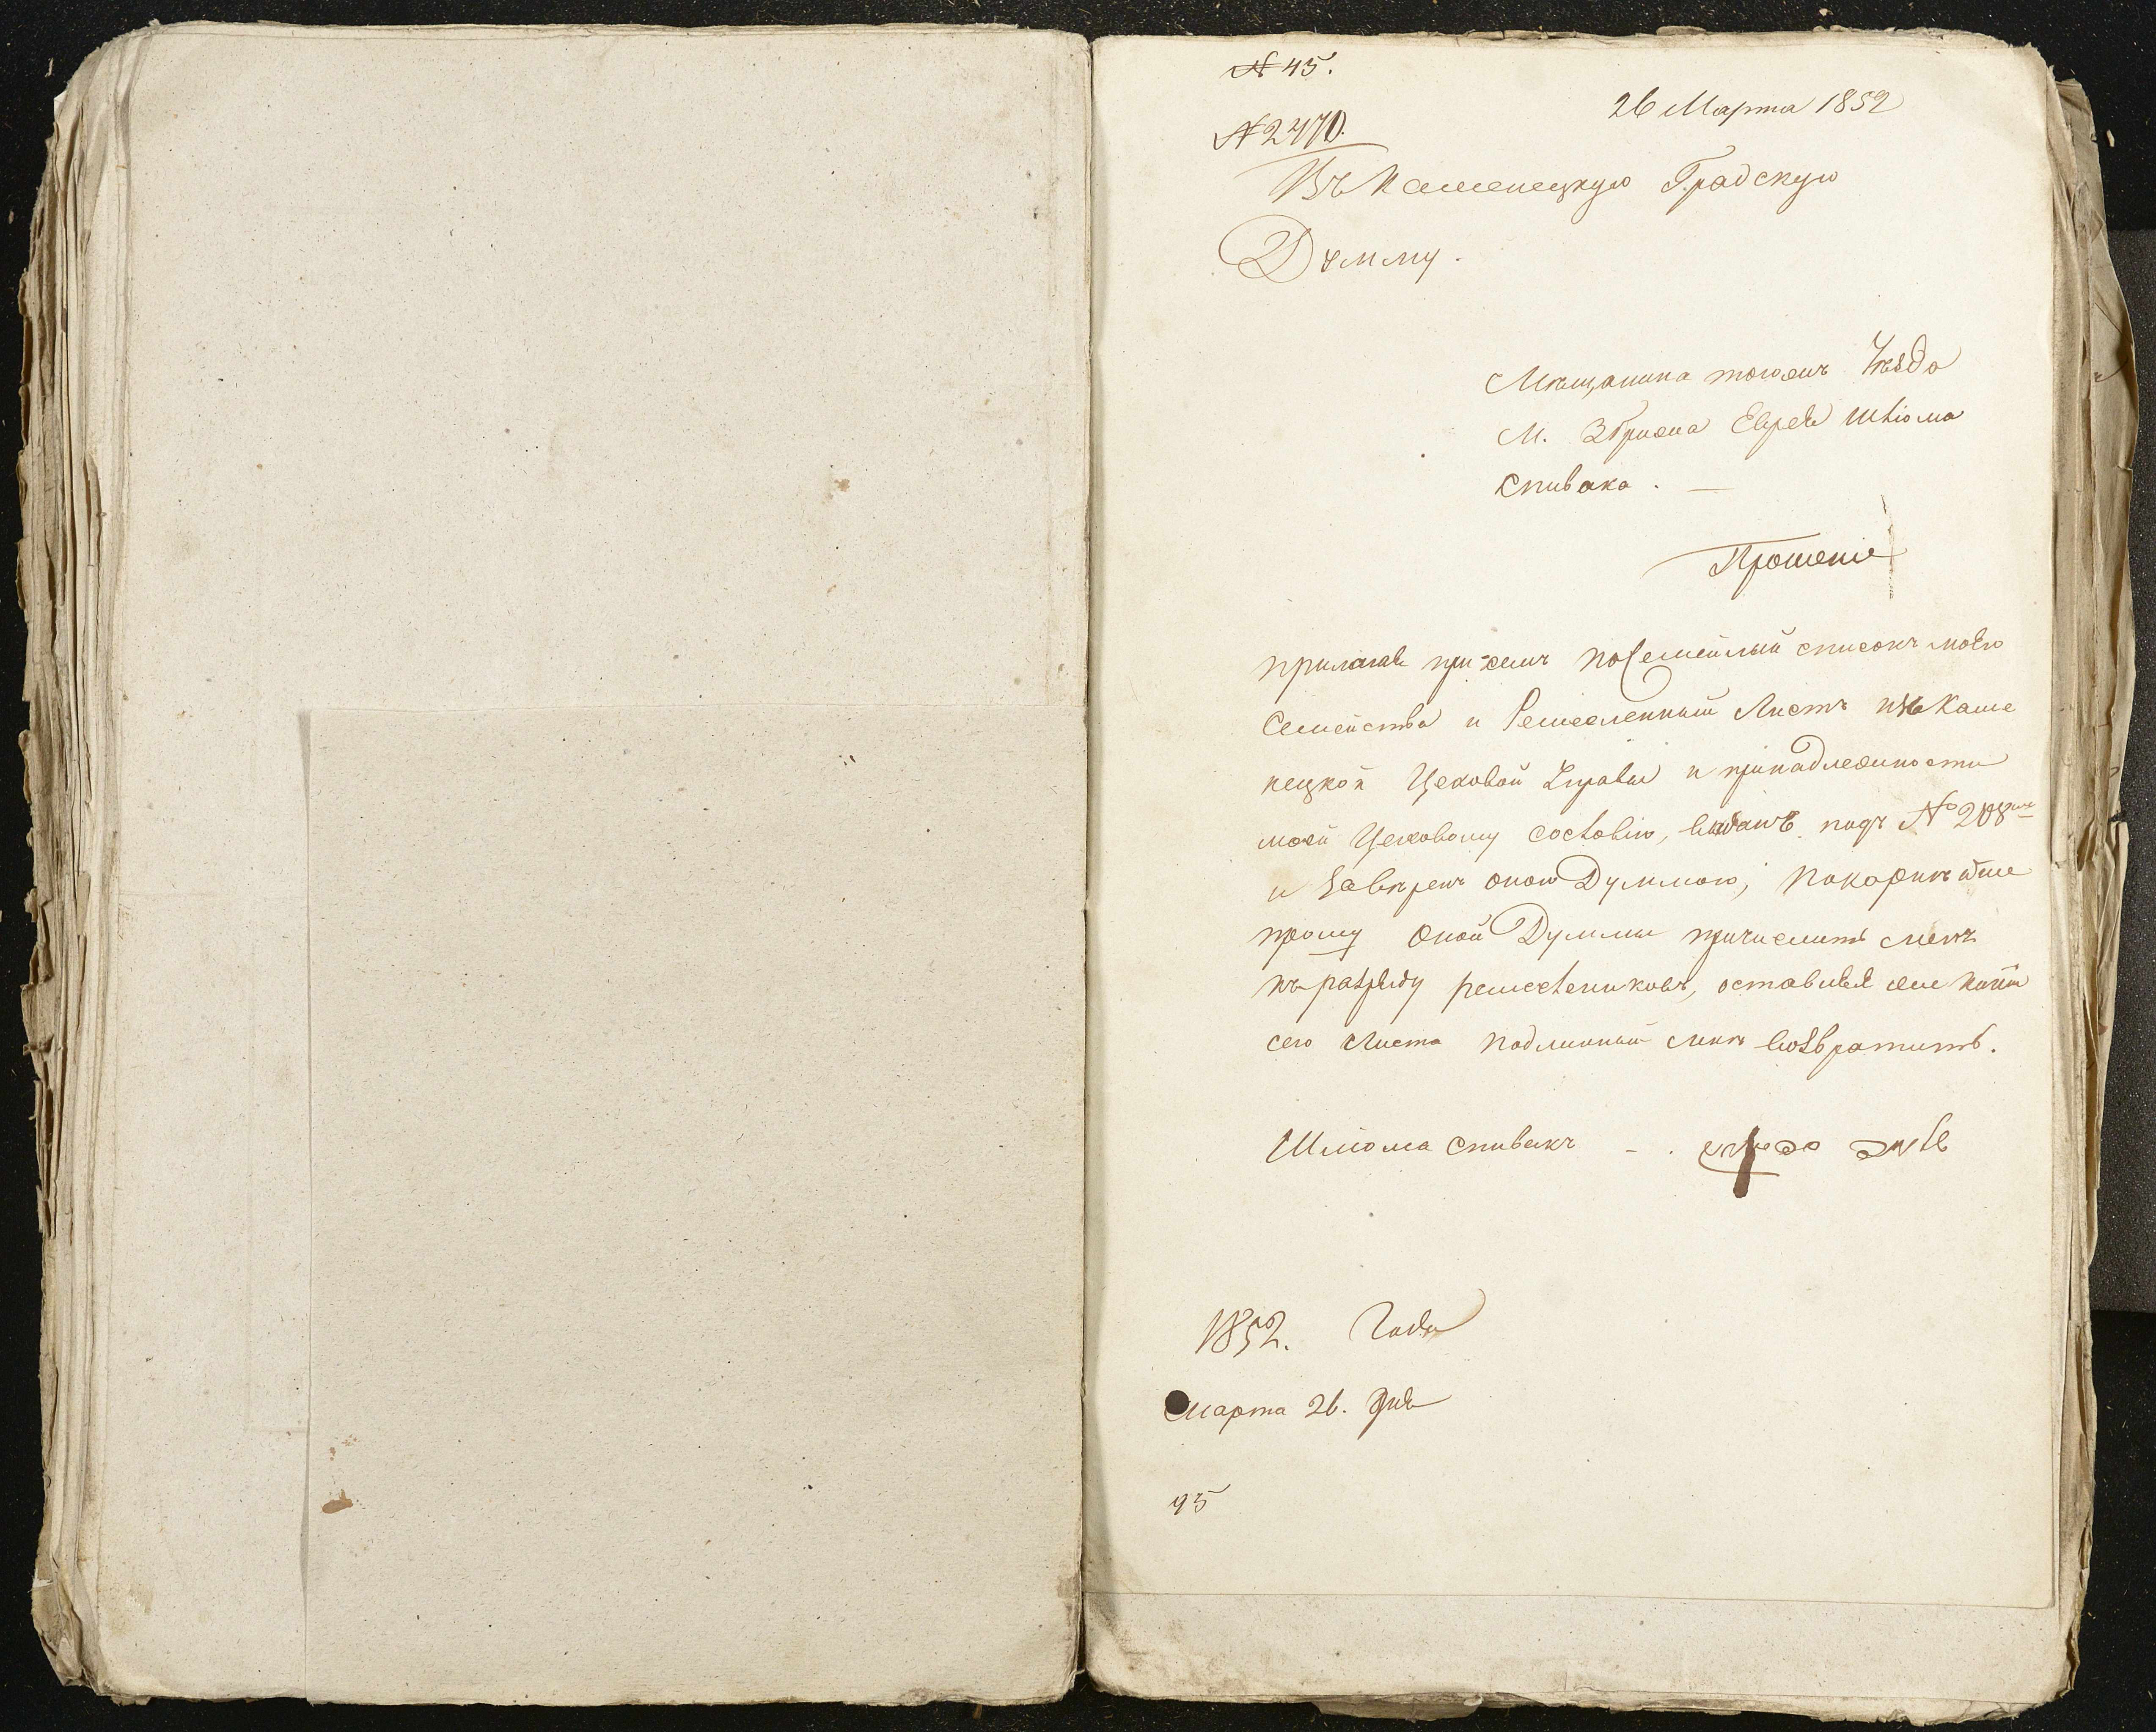 № 45.
26 Марта 1852
№ 2470.
Въ Каменецкую Градскую
Думму.
Мещанина тогожъ Уезда
М. Збрижа Еврея Шліома
Спивака. —
Прошеніе
прилагая при семъ посемейный списокъ моего
Семейства и Ремесленный Листъ изъ Каме
нецкой Цеховой Управы и принадлежности
моей Цеховому состовію, выданъ подъ № 208
и заверенъ оною Думмою, покорнейше
прошу оной Думмы причислить менъ
къ разряду ремествениковъ, оставивъ копію
сего Листа подлинный мне возвратить.
Шліома спивакъ - .
1852. Года
Марта 26. дня
95